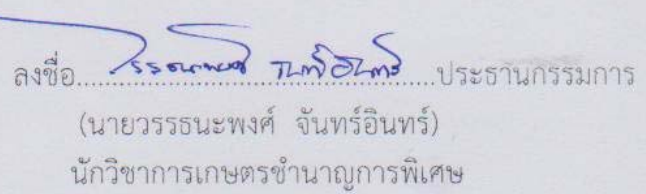 ลงชื่อ..........วรรธนะพงศ์ จันทร์อินทร์..........ประธานกรรมการ
(นายวรรธนะพงศ์ จันทร์อินทร์)
นักวิชาการเกษตรชำนาญการพิเศษ